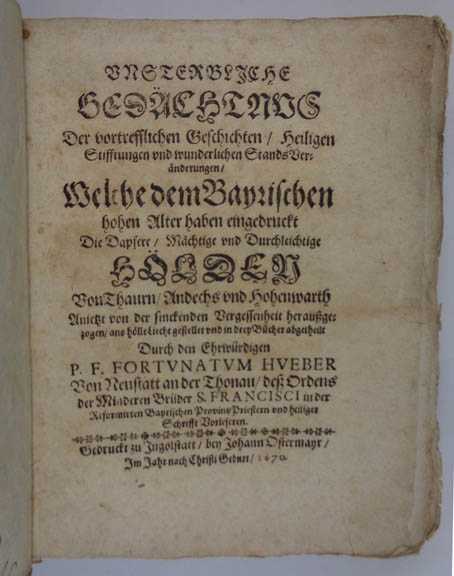 VNSTERBLICHE
GEDÄCHTNVS
Der vortrefflichen Geschichten / Heiligen
Stifftungen vnd wunderlichen StandsVer-
änderungen /
Welche dem Bayrischen
hohen Alter haben eingedruckt
Die Dapfere / Mächtige vnd Durchleichtige
HÖLDEN
Von Thaurn / Andechs vnd Hohenwarth
Anietzt von der sinckenden Vergessenheit heraußge-
zogen / ans hölle Liecht gestellet vnd in drey Bücher abgetheilt
Durch den Ehrwürdigen
P. F. FORTVNATVM HVEBER
Von Neustatt an der Thonau / deß Ordens
der Minderen Brüder S. FRANCISCI in der
Reformirten Bayrischen Provintz Priestern vnd heiliger
Schrifft Vorleseren.
Gedruckt zu Ingolstatt / bey Johann Ostermayr /
Im Jahr nach Christi Geburt / 1670.